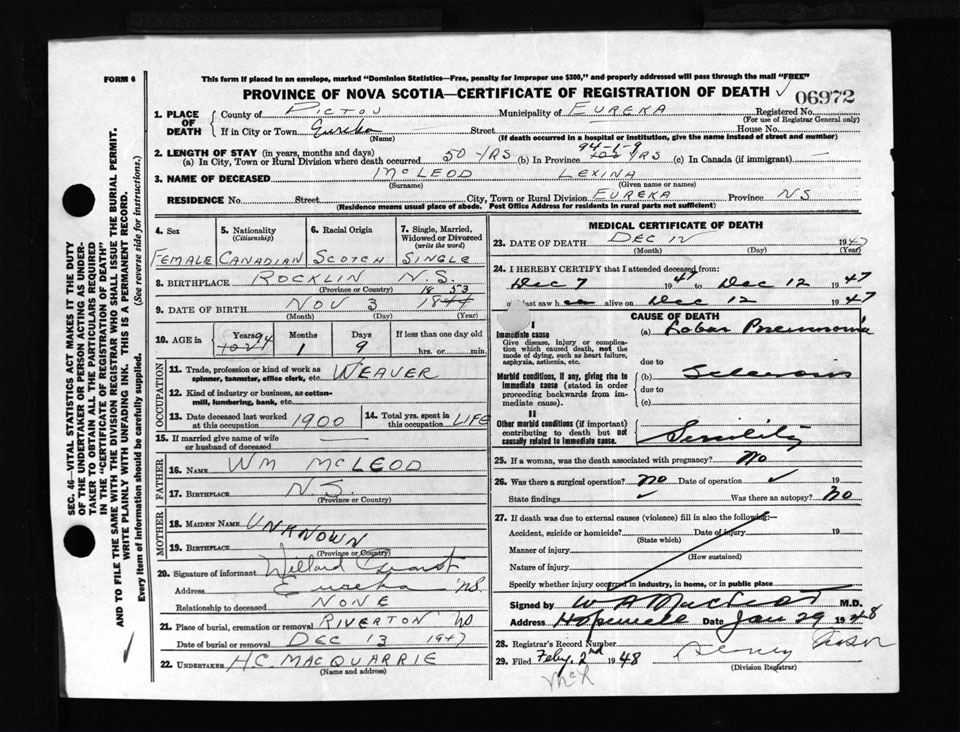 FORM 6
This form if placed in an envelope, marked "Dominion Statistics—Free, penalty for improper use $300," and properly addressed will pass through the mail "FREE"
PROVINCE OF NOVA SCOTIA—CERTIFICATE OF REGISTRATION OF DEATH ✓ 06972
1. PLACE OF DEATH { County of PICTOU Municipality of EUREKA Registered No.
(For use of Registrar General only)
If in City or Town Eureka Street House No.
(Name) (If death occurred in a hospital or institution, give the name instead of street and number)
2. LENGTH OF STAY (in years, months and days)
94-1-9
(a) In City, Town or Rural Division where death occurred 50 YRS (b) In Province 102 YRS (c) In Canada (if immigrant) —
3. NAME OF DECEASED MCLEOD LEXINA
(Surname) (Given name or names)
RESIDENCE No. Street City, Town or Rural Division EUREKA Province NS
(Residence means usual place of abode. Post Office Address for residents in rural parts not sufficient)
4. Sex 5. Nationality (Citizenship) 6. Racial Origin 7. Single, Married, Widowed or Divorced (write the word)
FEMALE CANADIAN SCOTCH SINGLE
8. BIRTHPLACE ROCKLIN N.S.
(Province or Country)
18 53
9. DATE OF BIRTH NOV 3 1844
(Month) (Day) (Year)
10. AGE in { Years Months Days If less than one day old
102 94 1 9 hrs. or min.
OCCUPATION
11. Trade, profession or kind of work as spinner, teamster, office clerk, etc. WEAVER
12. Kind of industry or business, as cotton-mill, lumbering, bank, etc.
13. Date deceased last worked at this occupation 1900 14. Total yrs. spent in this occupation LIFE
15. If married give name of wife or husband of deceased —
FATHER
16. NAME WM MCLEOD
17. BIRTHPLACE N.S.
(Province or Country)
MOTHER
18. MAIDEN NAME UNKNOWN
19. BIRTHPLACE
(Province or Country)
20. Signature of informant Willard
Address Eureka NS
Relationship to deceased NONE
21. Place of burial, cremation or removal RIVERTON NS
Date of burial or removal DEC 13 1947
22. UNDERTAKER H C MACQUARRIE
(Name and address)
MEDICAL CERTIFICATE OF DEATH
23. DATE OF DEATH DEC 12 1947
(Month) (Day) (Year)
24. I HEREBY CERTIFY that I attended deceased from:
Dec 7 1947 to Dec 12 1947
last saw h er alive on Dec 12 1947
CAUSE OF DEATH
I
Immediate cause
Give disease, injury or complication which caused death, not the mode of dying, such as heart failure, asphyxia, asthenia, etc.
(a) Lobar Pneumonia
due to
Morbid conditions, if any, giving rise to immediate cause (stated in order proceeding backwards from immediate cause).
(b) Sclerosis
due to
(c)
II
Other morbid conditions (if important) contributing to death but not causally related to immediate cause.
Senility
25. If a woman, was the death associated with pregnancy? No
26. Was there a surgical operation? no Date of operation ✓ 19
State findings ✓ Was there an autopsy? no
27. If death was due to external causes (violence) fill in also the following:—
Accident, suicide or homicide? Date of injury 19
(State which)
Manner of injury
(How sustained)
Nature of injury
Specify whether injury occurred in industry, in home, or in public place
Signed by W A MacLeod M.D.
Address Hopewell Date Jan 29 1948
28. Registrar's Record Number
29. Filed Feby. 2nd 1948
(Division Registrar)
SEC. 46—VITAL STATISTICS ACT MAKES IT THE DUTY
OF THE UNDERTAKER OR PERSON ACTING AS UNDERTAKER TO OBTAIN ALL THE PARTICULARS REQUIRED
IN THE "CERTIFICATE OF REGISTRATION OF DEATH"
AND TO FILE THE SAME WITH THE DIVISION REGISTRAR WHO SHALL ISSUE THE BURIAL PERMIT.
WRITE PLAINLY WITH UNFADING INK. THIS IS A PERMANENT RECORD.
Every item of information should be carefully supplied. (See reverse side for instructions.)